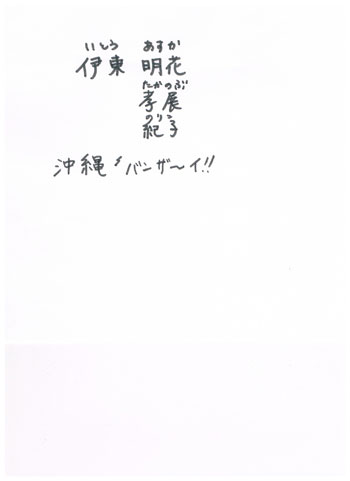 いとう あすか
伊東 明花
たかのぶ
孝展
のりこ
紀子
沖縄〝バンザ〜イ!!